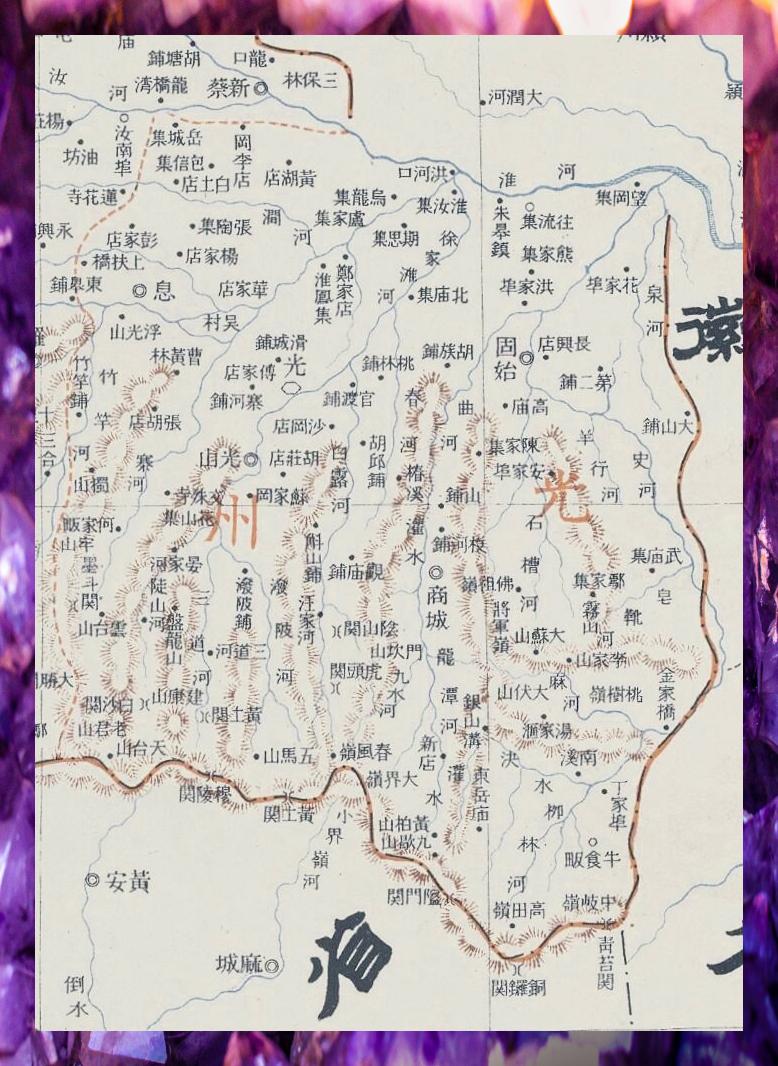 廟
胡塘鋪
龍口
三保林
汝
河
龍橋湾
新蔡
大潤河
潁
汝南埠
油坊
岳城集
包信集
岡李店
白土店
黃湖店
洪河口
淮
河
望岡集
蓮花寺
烏龍集
盧家集
淮汝集
朱皋鎮
往流集
熊家集
永興
彭家店
張陶集
澗
河
期思集
徐家
淮
河
上扶橋
楊家店
鄭家店
淮鳳集
洪家埠
花家埠
泉河
東岳鋪
息
華家店
北庙集
浮光山
吴村
徽
曹黃林
滑城鋪
光
傅家店
桃林鋪
胡族鋪
固始
長興店
竹竿鋪
竹
竿
河
寨河鋪
官渡鋪
春
河
曲
河
第二鋪
高庙
張胡店
沙岡店
大山鋪
十三里合
寨
河
光山
胡莊店
白露河
胡邱鋪
椿溪
陳家集
安家埠
羊
行
河
史
河
獨山
文殊寺
花山集
蘇家岡
山鋪
光
州
何家畈
牢山
灌
水
石
槽
河
武庙集
墨斗関
晏家河
斛山鋪
觀庙鋪
商城
佛祖嶺
鄢家集
皂
靴
河
雲台山
陡山河
盤龍山
三
道
河
潑陂鋪
潑
陂
河
汪家河
陰山関
將軍嶺
大蘇山
霧山
三道河
門坎山
龍
潭
河
李家山
大勝関
虎頭関
九
水
河
大伏山
麻
河
桃樹嶺
金家橋
白沙関
老君山
建康山
黃土関
銀山溝
湯家滙
天台山
五馬山
春風嶺
新店
南溪
大界嶺
灌
水
東岳庙
決
水
丁家埠
穆陵関
黃土関
小
界
嶺
河
黃柏山
九歇山
柳
林
河
牛食畈
黃安
隘門関
高田嶺
中岐嶺
麻城
省
青苔関
銅鑼関
倒
水